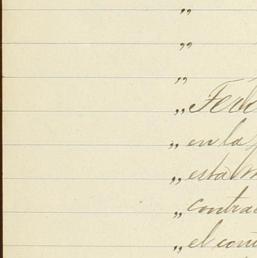 "
"
"
„ Feb
„ en la
„ esta
„ contra
„ el con